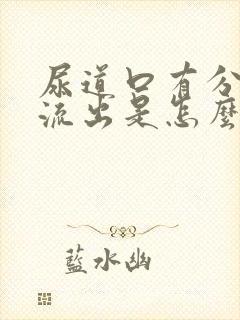 尿道口有分
流出是怎麼
藍水幽